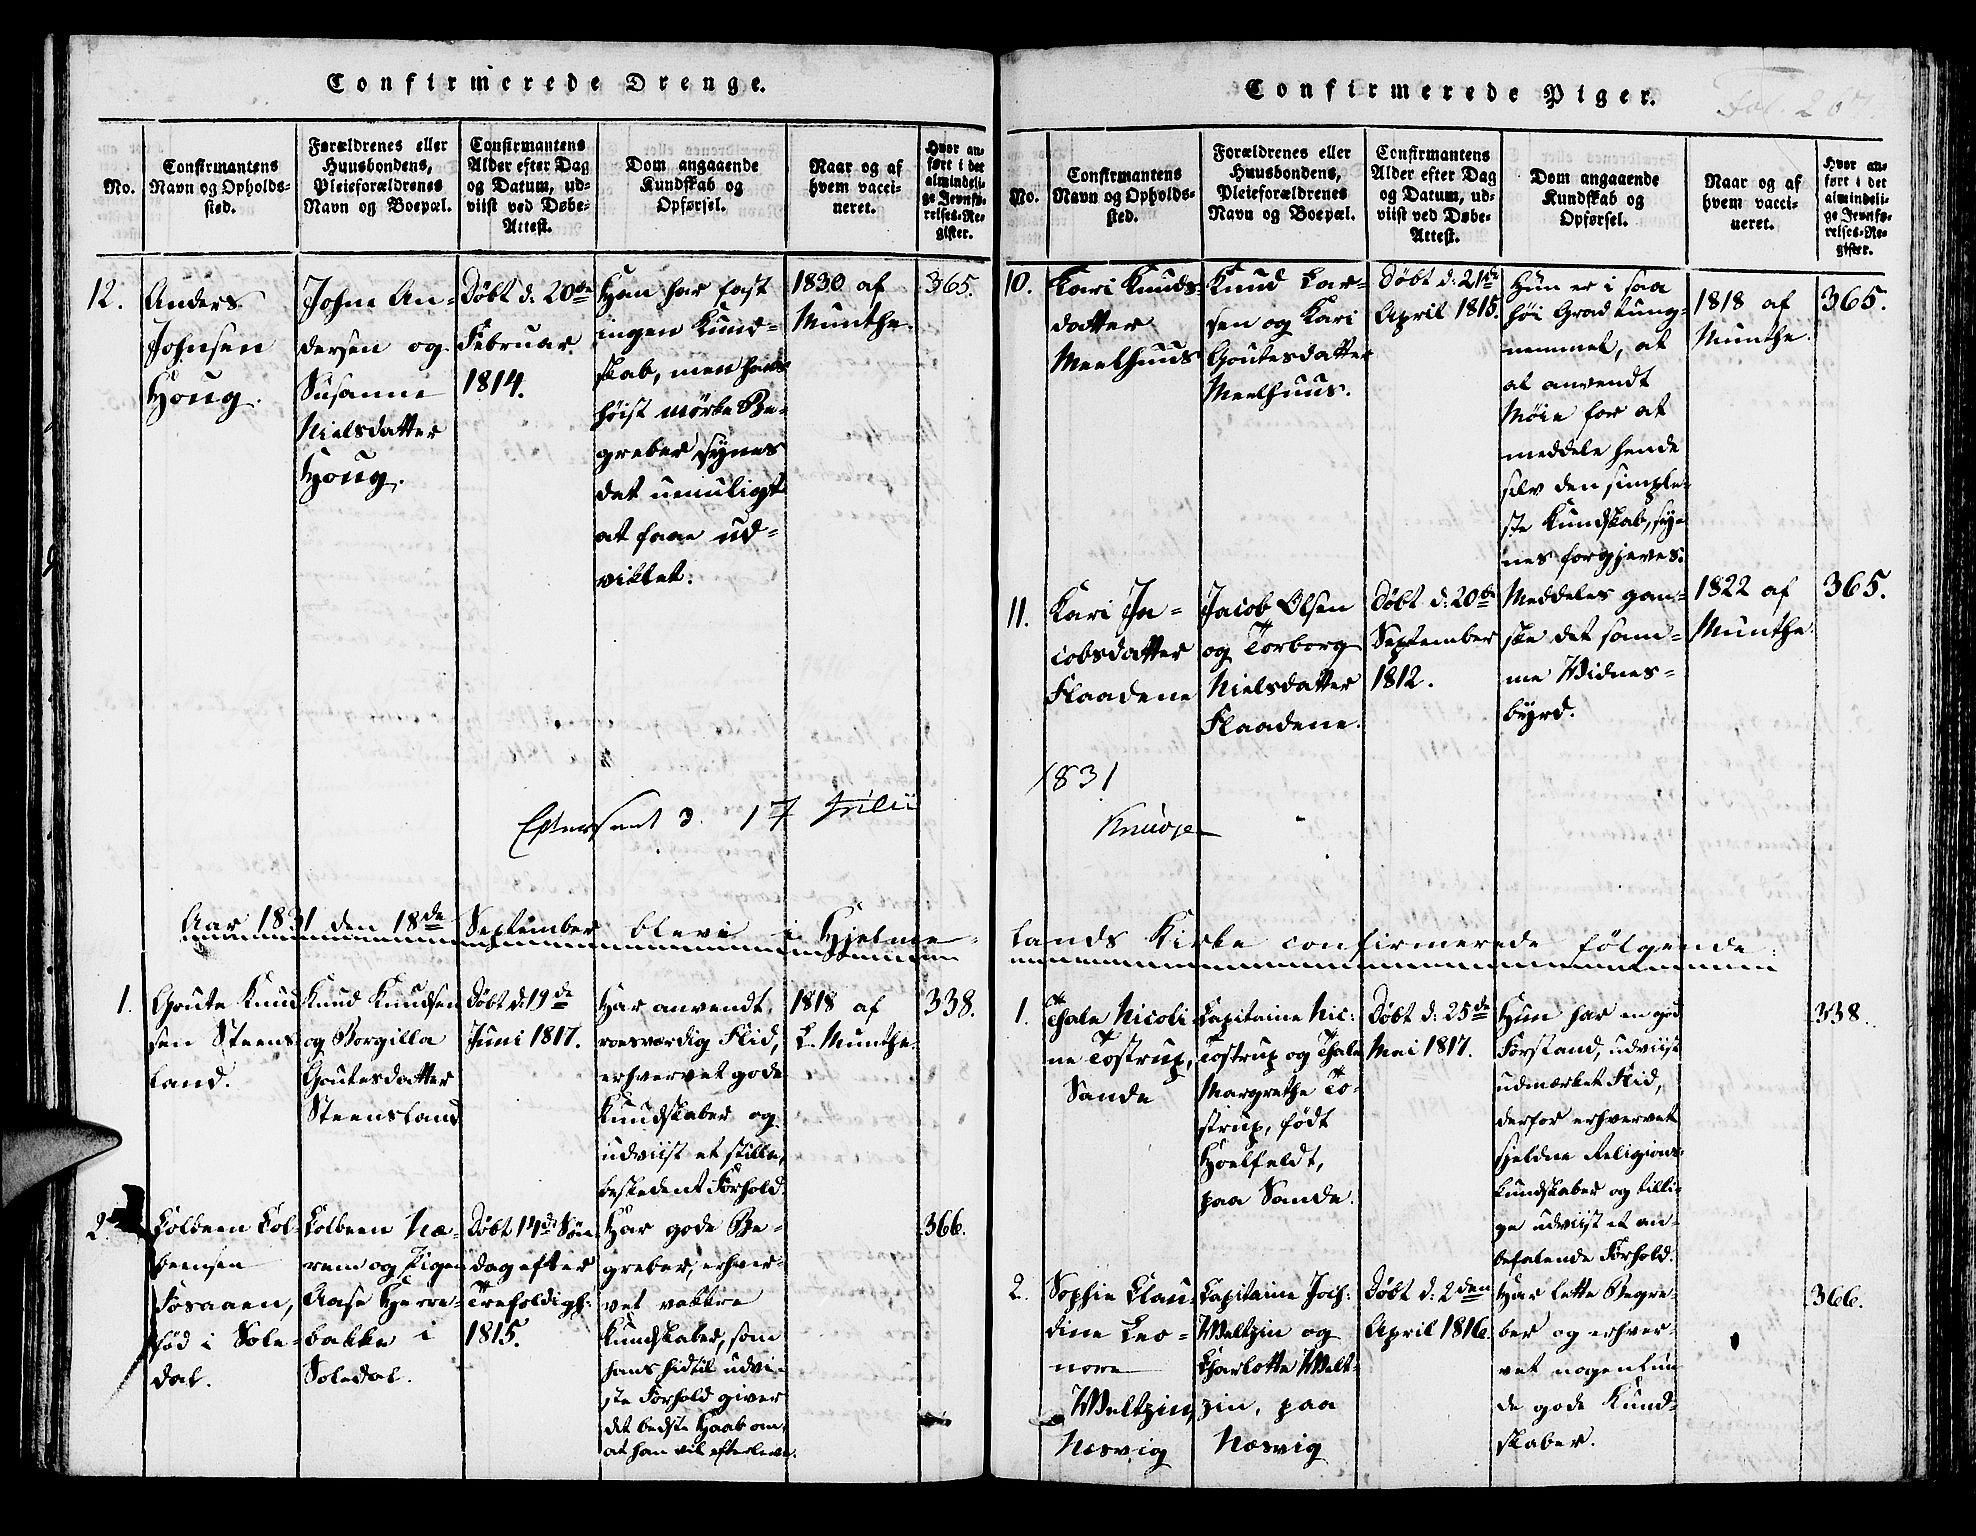 Confirmerede Drenge.
No.
Confirmantens
Navn og Opholds-
sted.
Forældrenes eller
Huusbondens,
Pleieforældrenes
Navn og Boepæl.
Confirmantens
Alder efter Dag
og Datum, ud-
viist ved Døbe-
Attest.
Dom angaaende
Kundskab og
Opførsel.
Naar og af
hvem vacci-
neret.
Hvor an-
ført i det
almindeli-
ge Jevnfø-
relses-Re-
gister.
12.
Anders
Johnsen
Houg.
John An-
dersen og
Susanne
Nielsdatter
Houg.
Døbt d. 20de
Februar
1814.
Han har fast
ingen Kund-
skab, men hans
høist mørke Be-
greber synes
det umuligt
at faae ud-
viklet.
1830 af
Munthe.
365.
17 Julii
Aar 1831 den 18de September bleve i Hjelme-
1.
Goute Knud
sen Steens
land.
Knud Knudsen
og Borgilla
Goutesdatter
Steensland
Døbt d. 19de
Juni 1817.
Har anvendt
roesværdig Flid,
erhvervet gode
Kundskaber og
udviist et stille,
beskedent Forhold.
1818 af
L. Munthe.
338.
2.
Kolbeen Kol-
beensen
Fosaaen,
fød i Sole-
dal.
Kolbeen Næ-
rem og Pigen
Aase Herre-
bakke i
Soledal.
Døbt 14de Søn
dag efter
Trefoldigh:
1815.
Har gode Be-
greber, erhver-
vet vakkre
Kundskaber, som
hans hidtil udvi-
ste Forhold giver
det bedste Haab om,
at han vil efterleve.
366.
Confirmerede Piger.
No.
Confirmantens
Navn og Opholds-
sted.
Forældrenes eller
Huusbondens,
Pleieforældrenes
Navn og Boepæl.
Confirmantens
Alder efter Dag
og Datum, ud-
viist ved Døbe-
Attest.
Dom angaaende
Kundskab og
Opførsel.
Naar og af
hvem vacci-
neret.
Hvor an-
ført i det
almindeli-
ge Jevnfø-
relses-Re-
gister.
10.
Kari Knuds-
datter
Meelhuus
Knud Lar-
sen og Kari
Goutesdatter
Meelhuus.
Døbt d. 21de
April 1815.
Hun er i saa
høi Grad tung-
nemmet, at
al anvendt
Møie for at
meddele hende
selv den simple-
ste Kundskab, sy-
nes forgjeves.
1818 af
Munthe.
365.
11.
Kari Ja-
cobsdatter
Flaadene
Jacob Olsen
og Torborg
Nielsdatter
Flaadene.
Døbt d. 20de
September
1812.
Meddeles gan-
ske det sam-
me Vidnes-
byrd.
1822 af
Munthe.
365.
1831
lands Kirke confirmerede følgende:
1.
Thale Nicoli
ne Tostrup,
Sande
Capitaine Nic:
Tostrup og Thale
Margrethe To-
strup, født
Hoelfeldt,
paa Sande.
Døbt d. 25de
Mai 1817.
Hun har en god
Forstand, udviist
udmærket Flid,
derfor erhvervet
sjeldne Religions-
kundskaber og tilli-
ge udviist et an-
befalende Forhold.
338.
2.
Sophie Clau-
dine Leo-
nore
Weltzin,
Næsvig
Capitaine Joch:
Weltzin og
Charlotte Welt-
zin, paa
Næsvig
Døbt d. 2den
April 1816.
Har lette Begre-
ber og erhver-
vet nogenlun
de gode Kund-
skaber.
366.